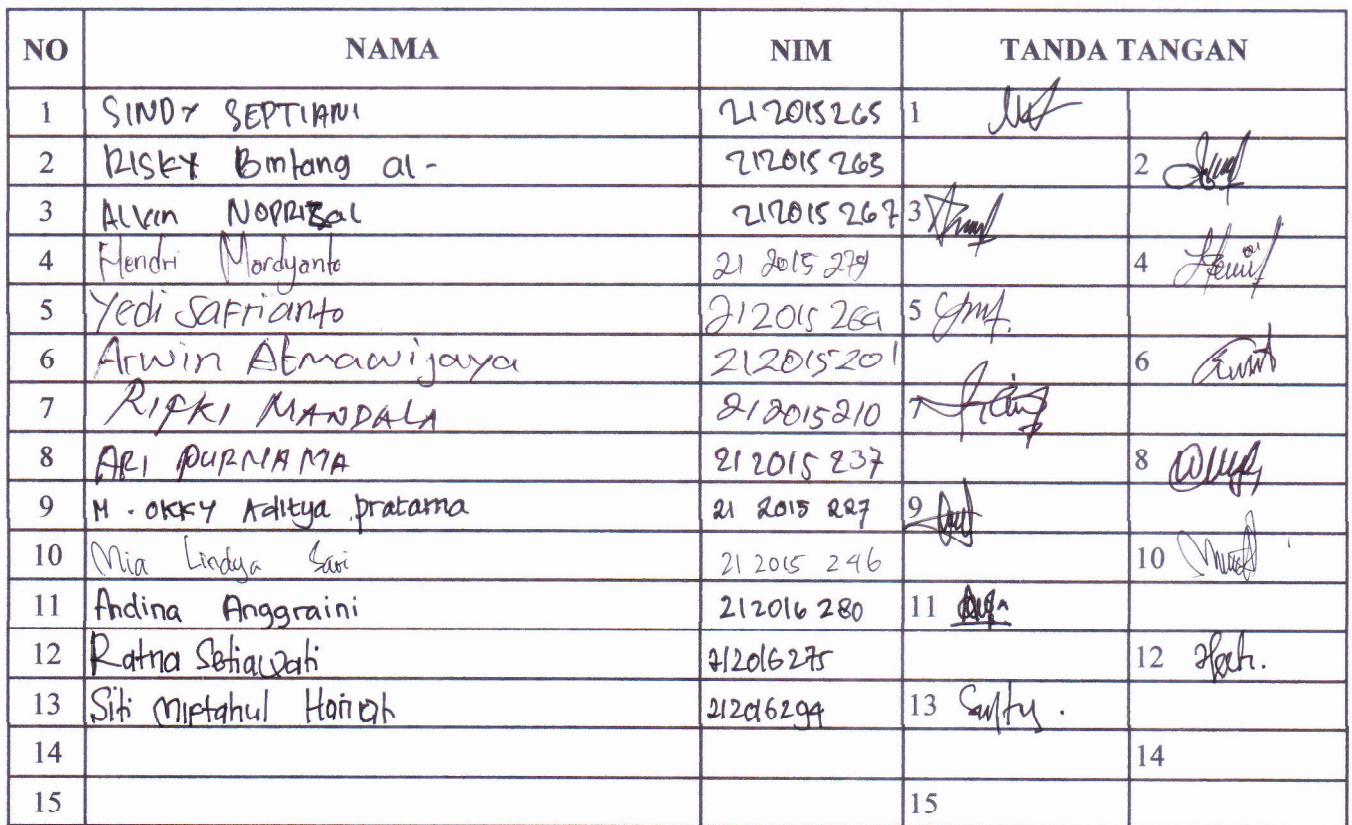 NO NAMA NIM TANDA TANGAN
1 SINDY SEPTIANI 212015265 1
2 RISKY Bintang al- 212015263 2
3 Alvin NOPRIZAL 212015267 3
4 Hendri Mardyanto 21 2015 279 4
5 Yedi Safrianto 212015 269 5
6 Arwin Atmawijaya 212015201 6
7 RIFKI MANDALA 212015210 7
8 ARI PURNAMA 212015 237 8
9 M. OKKY Aditya pratama 21 2015 227 9
10 Mia Lindya Sari 21 2015 246 10
11 Andina Anggraini 212016 280 11
12 Ratna Setiawati 212016275 12
13 Siti Miftahul 212016294 13
14 14
15 15